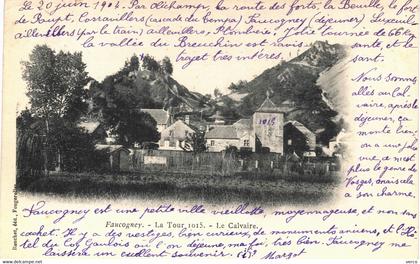 Le 20 juin 1904. Par Olichamp, la route des forts, la Beulle, le fort
de Rupt, Corravillers (cascade du Cerupa) Faucogney (déjeuner) Luxeuil
Aillevillers (par le train) Aillevillers, Plombières. Jolie tournée de 66 km
la vallée du Breuchin est ravissante et le
trajet très intéressant.
Nous sommes
allés au cal
vaire, après
déjeuner, ça
monte
bien, mais
vue
je n'ai
plus le genre
Vosges, mais elle
a son charme
1015
Faucogney. - La Tour 1015. - Le Calvaire.
Faucogney est une petite ville vieillotte, moyenageuse, et non sans
cachet. Il y a des vestiges bien curieux, de monuments anciens, et l'hô
tel du Coq Gaulois où l'on déjeune, ma foi, très bien. Faucogney me
laissera un excellent souvenir. Margot